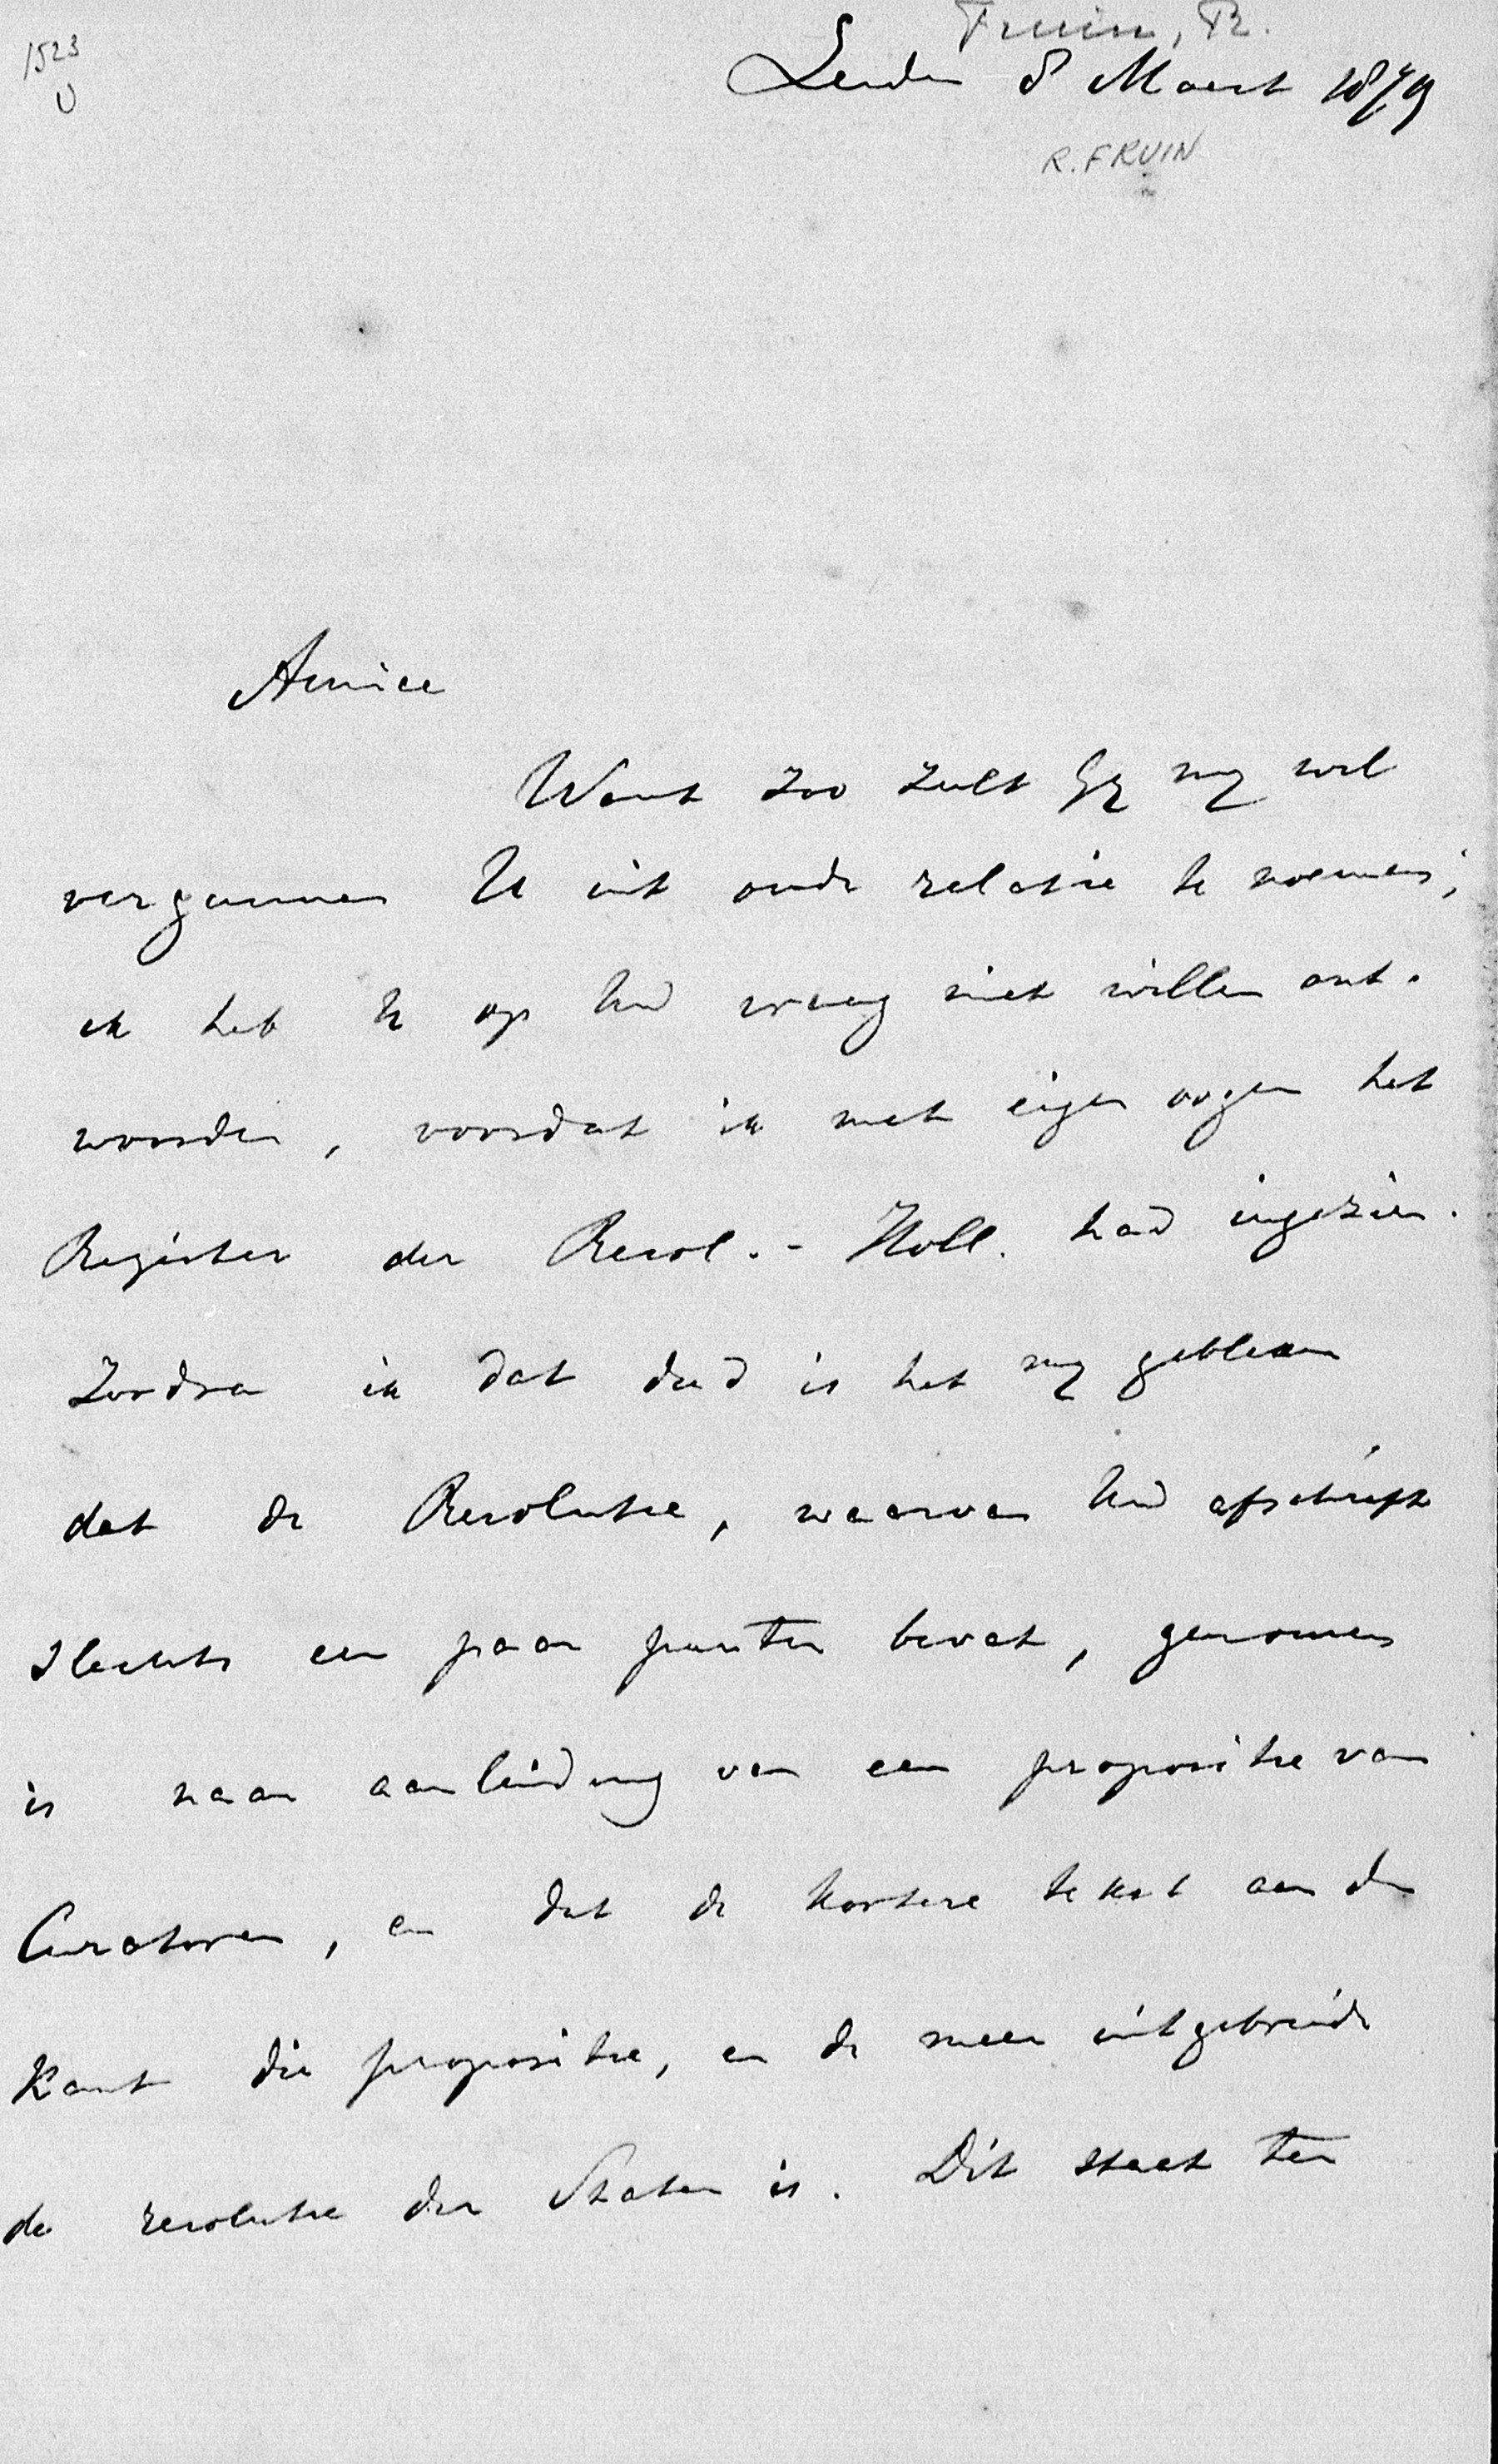 1523
U
Fruin, R.
Leiden 8 Maart 1879
R. FRUIN
Amice
Want zoo zult Gij mij wel
vergunnen U uit oude relatie te noemen;
ik heb U op Uw vraag niet willen ant-
woorden, voordat ik met eigen oogen het
Register der Resol. - Holl. had ingezien.
Zoodra ik dat deed is het mij gebleken
dat de Resolutie, waarvan Uw afschrift
slechts een paar punten bevat, genomen
is naar aanleiding van een propositie van
Curatoren, en dat de kortere tekst aan de
kant die propositie, en de meer uitgebreide
de resolutie der Staten is. Dit staat ten